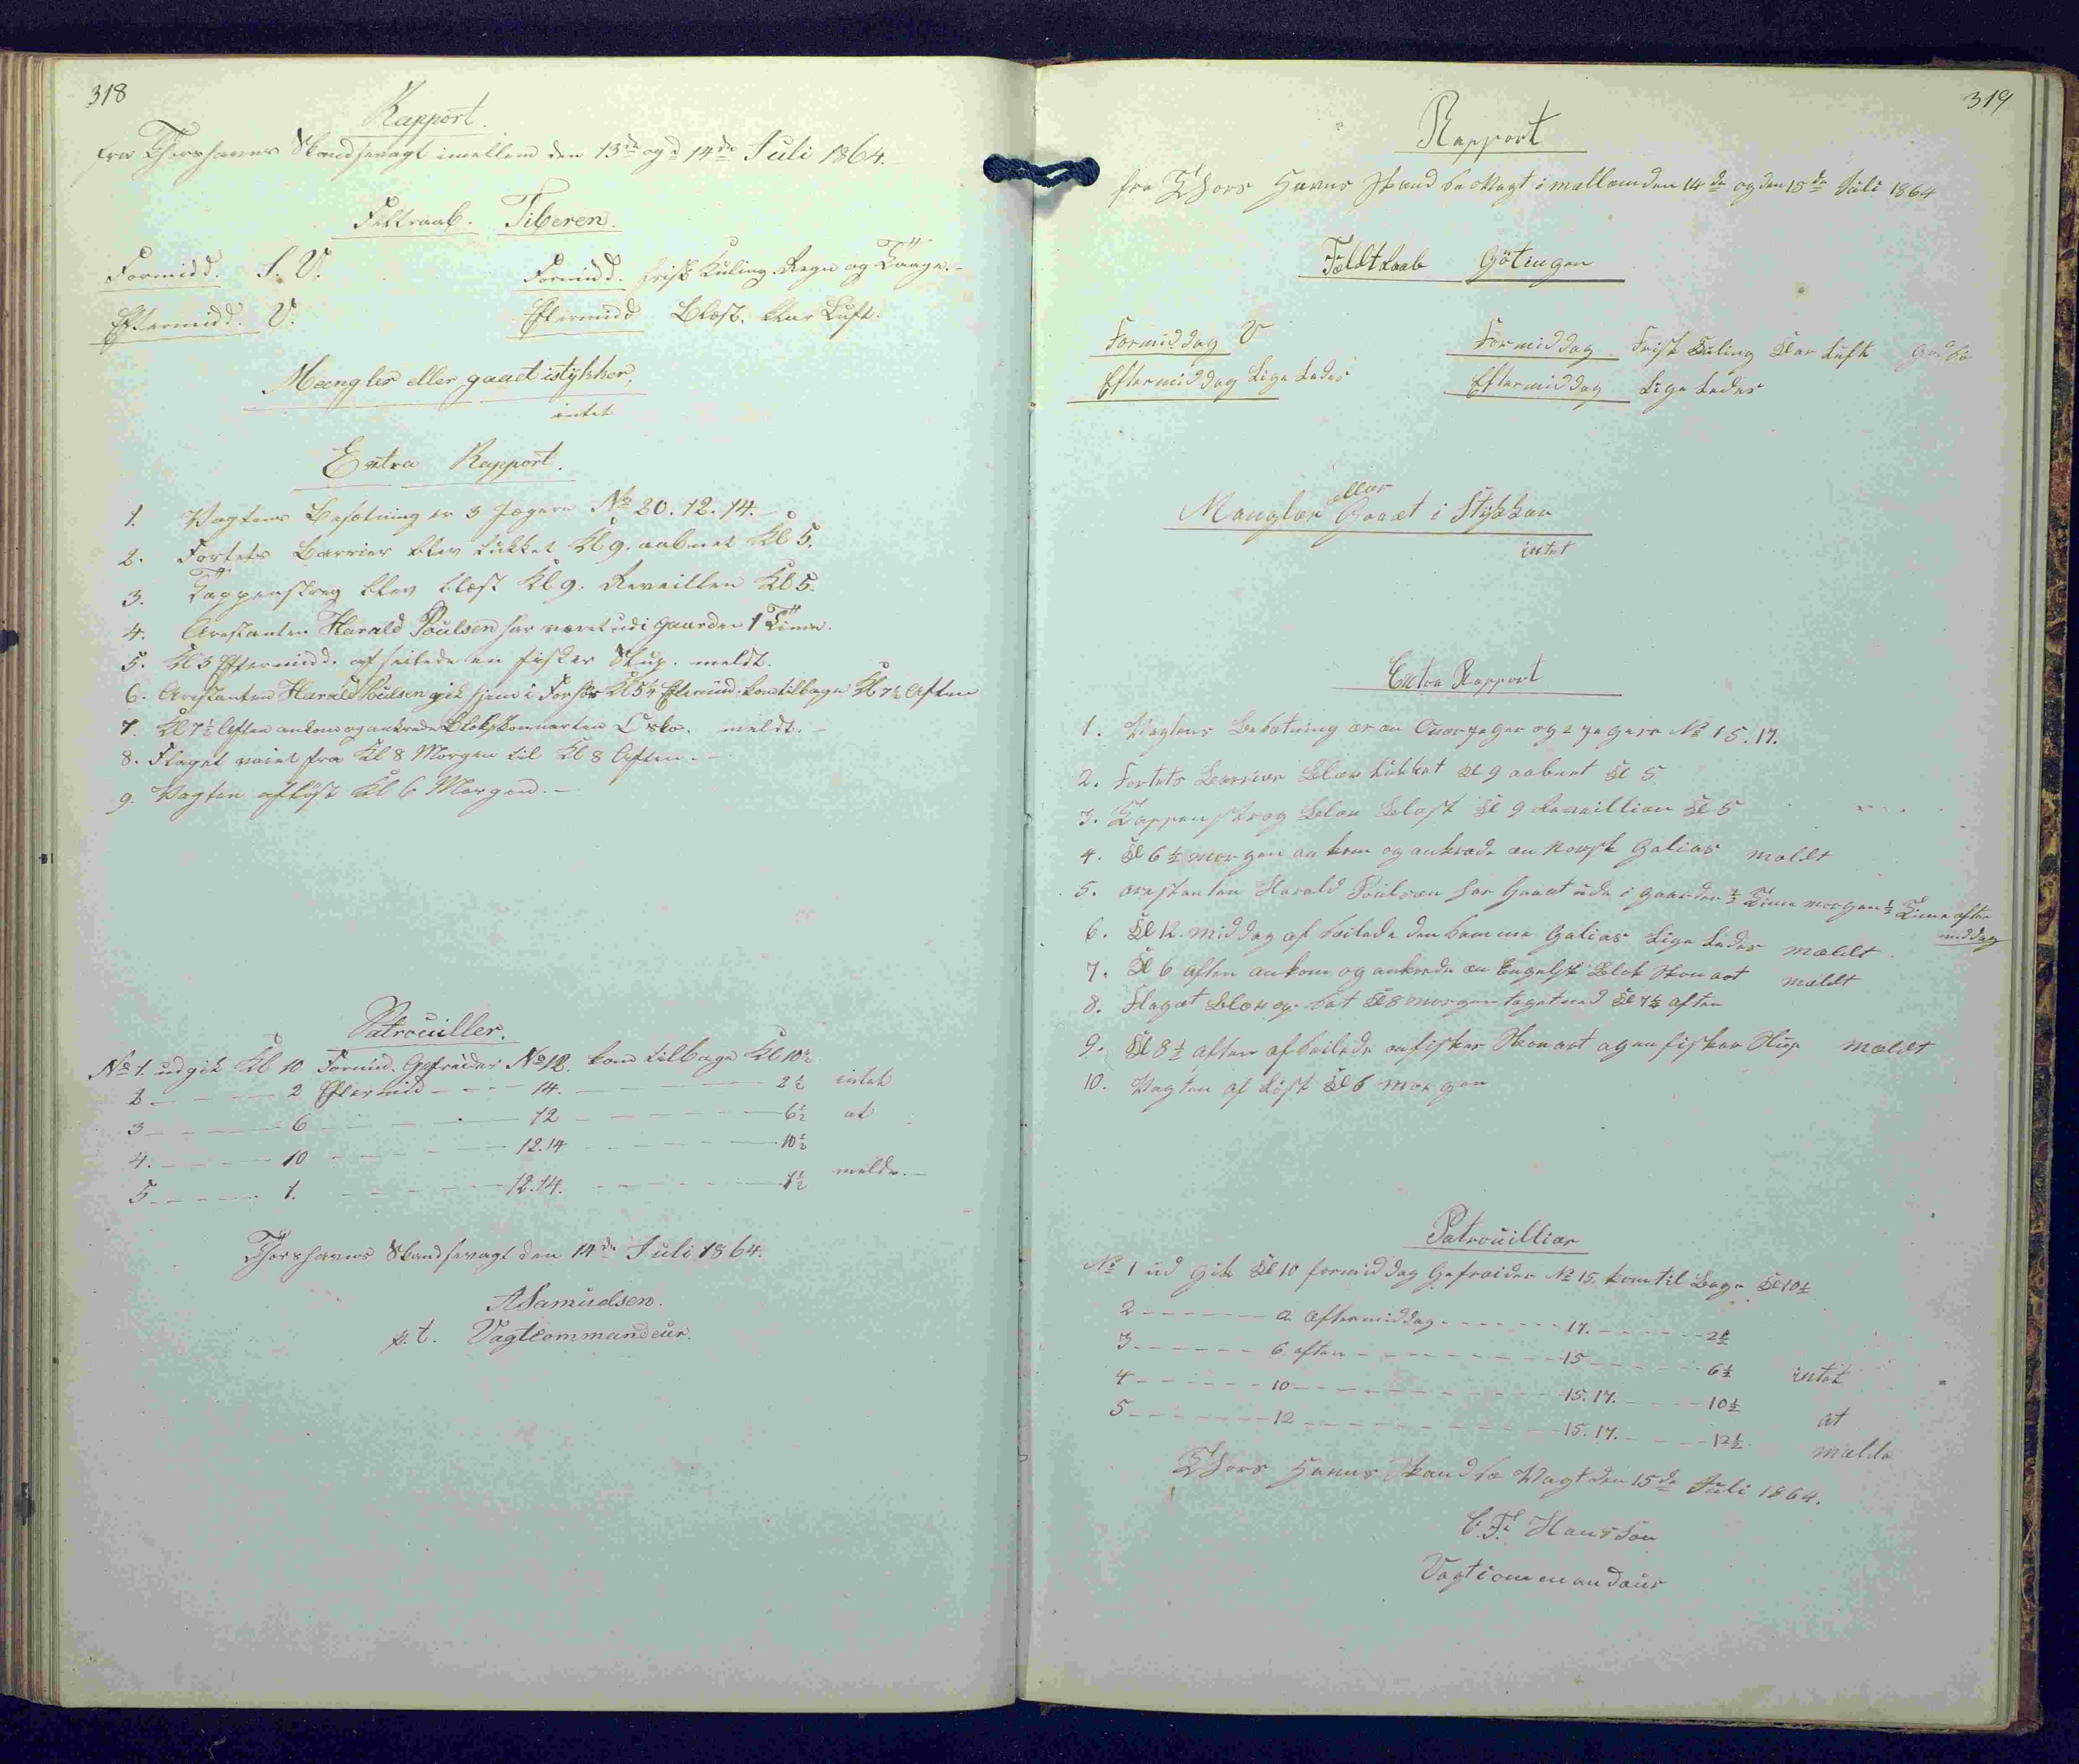 318
Rapport.
fra Thorshavns Skandsevagt imellem den 13de og d 14de Juli 1864.
Feltraab. Tiberen.
Formidd. S. V. Formidd. frisk Kuling. Regn og Taage.
Eftermidd. V. Eftermidd Blæst. klar Luft.
Mangler eller gaaet istykker.
intet
Extra Rapport.
1. Vagtens Besætning er 3 Jægere No 20. 12. 14.
2. Fortets Barrier blev lukket Kl 9. aabnet Kl 5.
3. Tappenstreg blev blæst Kl 9. Reveillen Kl 5.
4. Arestanten Harald Poulsen har været udi Gaarden 1 Time.
5. Kl 3 Eftermidd. afseilede en fisker Slup. meldt.
6. Arestanten Harald Poulsen gik hjem i Forhør Kl 5¼ Eftermid. kom tilbage Kl 7½ Aften
7. Kl 7½ Aften ankom og ankrede Klokskonnerten Esko. meldt.
8. Flaget vaiet fra Kl 8 Morgen til Kl 8 Aften.
9. Vagten afløst Kl 6 Morgend.
Patrouiller.
No 1. udgik Kl 10 Formid. Gefreider No 12. kom tilbage Kl 10½
2 - - - - 2 Eftermid - - - 14. - - - - 2½ intet
3 - - - - 6 - - - - 12 - - - - 6½ at
4. - - - - 10 - - - - 12.14 - - - - 10½
5 - - - - 1. - - - - 12.14. - - - - 1½ melde.
Thorshavns Skandsevagt den 14de Juli 1864.
A Samuelsen.
p.t. Vagtcommandeur.
319
Rapport
fra Thors Havns Skand se Vagt i mellem den 14de og den 15de Juli 1864
Feldt Raab Götingen
Formiddag V Formiddag Frisk Kuling Klar Luft
Eftermiddag Lige Ledes Eftermiddag Lige Ledes
Mangler eller Gaaet i Stykker
intet
Extra Rapport
1. Vagtens Besetning er en Overjeger og 2 jegere No 15. 17.
2. Fortets Barrier Blev Lukket Kl 9 aabnet Kl 5
3. Tappenstreg Blev Blæst Kl 9 Reveillien Kl 5
4. Kl 6½ morgen an kom og ankrede en Norsk Galias meldt
5. arestanten Harald Poulsen har Gaaet ude i Gaarden ½ Time morgen ½ Time after
middag
6. Kl 12. middag af seilede den samme Galias Lige Ledes meldt
7. Kl 6 aften ankom og ankrede en Engelsk Blok Skonart meldt
8. Flaget Blev op sat Kl 8 morgen taget ned Kl 7½ aften
9. Kl 8½ aften af seilede en fisker Skonart og en fisker Slup meldt
10. Vagten af Løst Kl 6 morgen
Patrouillier
No 1 ud gik Kl 10 formiddag Gefreider No 15. kom til Bage Kl 10½
2 - - - - 2 Eftermiddag - - - - 17. - - - - 2½
3 - - - - 6 aften - - - - 15 - - - - 6½ intet
4 - - - - 10 - - - - 15. 17. - - - - 10½
5 - - - - 12 - - - - 15. 17. - - - - 12½ at
melde
Thors Havns Skand se Vagt den 15de Juli 1864.
C. F. Hansson
Vagtcommandeur